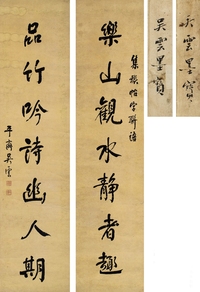 樂山觀水靜者趣
集禊帖字聯語
品竹吟詩幽人期
平齋吳雲
吳雲墨寶
吳雲墨寶